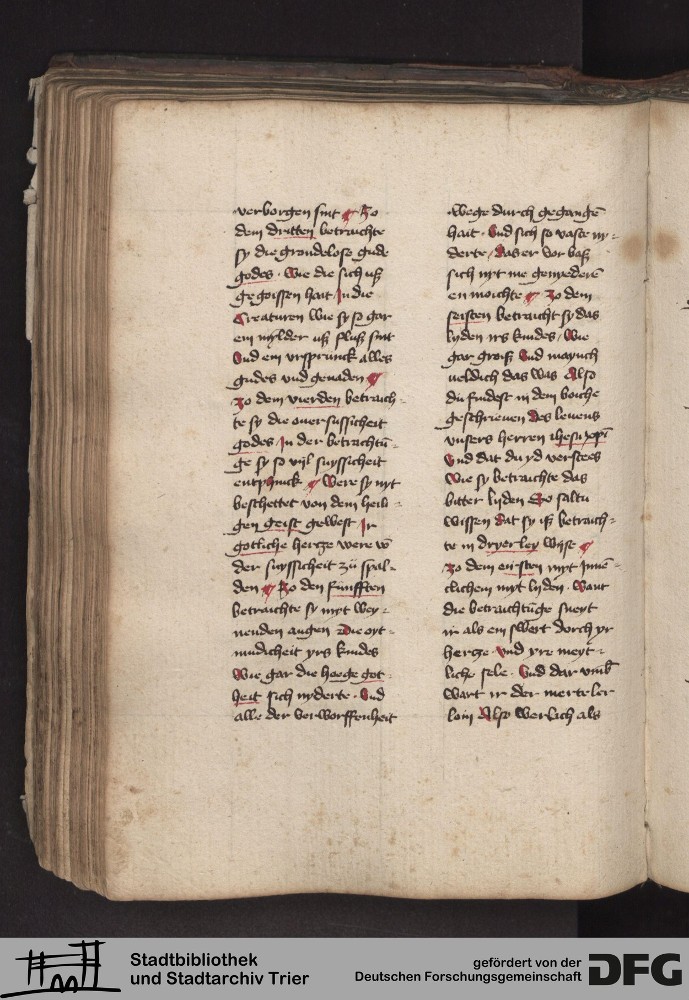 verborgen sint ¶ Zo
dem dritten betrachte
sy die grondelose gude
godes · Wie die sich uß
gegoissen hait / In die
Creaturen Wie sy so gar
ein mylder uß fluß sint
Und ein ursprunck alles
gudes und genaden ¶
Zo dem vierden betrach-
te sy die oversussicheit
godes / In der betrachtū-
ge sy so vyl suyssicheit
entphinck ¶ Were sy nyt
beschettet von dem heili-
gen geist gewest Ir
gotliche hertze were vō
der suyssicheit zü spal-
den ¶ Zo den fünfften
betrachte sy myt wey-
nenden augen Die oyt-
mudicheit yrs kindes
Wie gar die hoege got-
heit sich nyderte · Und
alle der verworffenheit
wege durch gegangē
hait · Und sich so vaste ny-
derte / das er vor baß
sich nyt me genyederē
en moichte ¶ Zo dem
seisten betracht sy das
lyden irs kindes / Wie
gar groiß Und manich
veldich das was Also
du findest in dem boiche
geschrieven des levens
unsers herren ihesu xpi
Und dat du yd verstees
Wie sy betrachte das
bitter lyden So saltu
wissen dat sy iß betrach-
te in dryerley wyse ¶
Zo dem eirsten myt Innē-
clichem myt lyden · Want
die betrachtūge sneyt
ir als ein swert dorch yr
hertze · Und yre meyt-
liche sele · Und dar umb
wart ir der merteler
loin Also werlich als
Stadtbibliothek
und Stadtarchiv Trier
gefördert von der
Deutschen Forschungsgemeinschaft
DFG